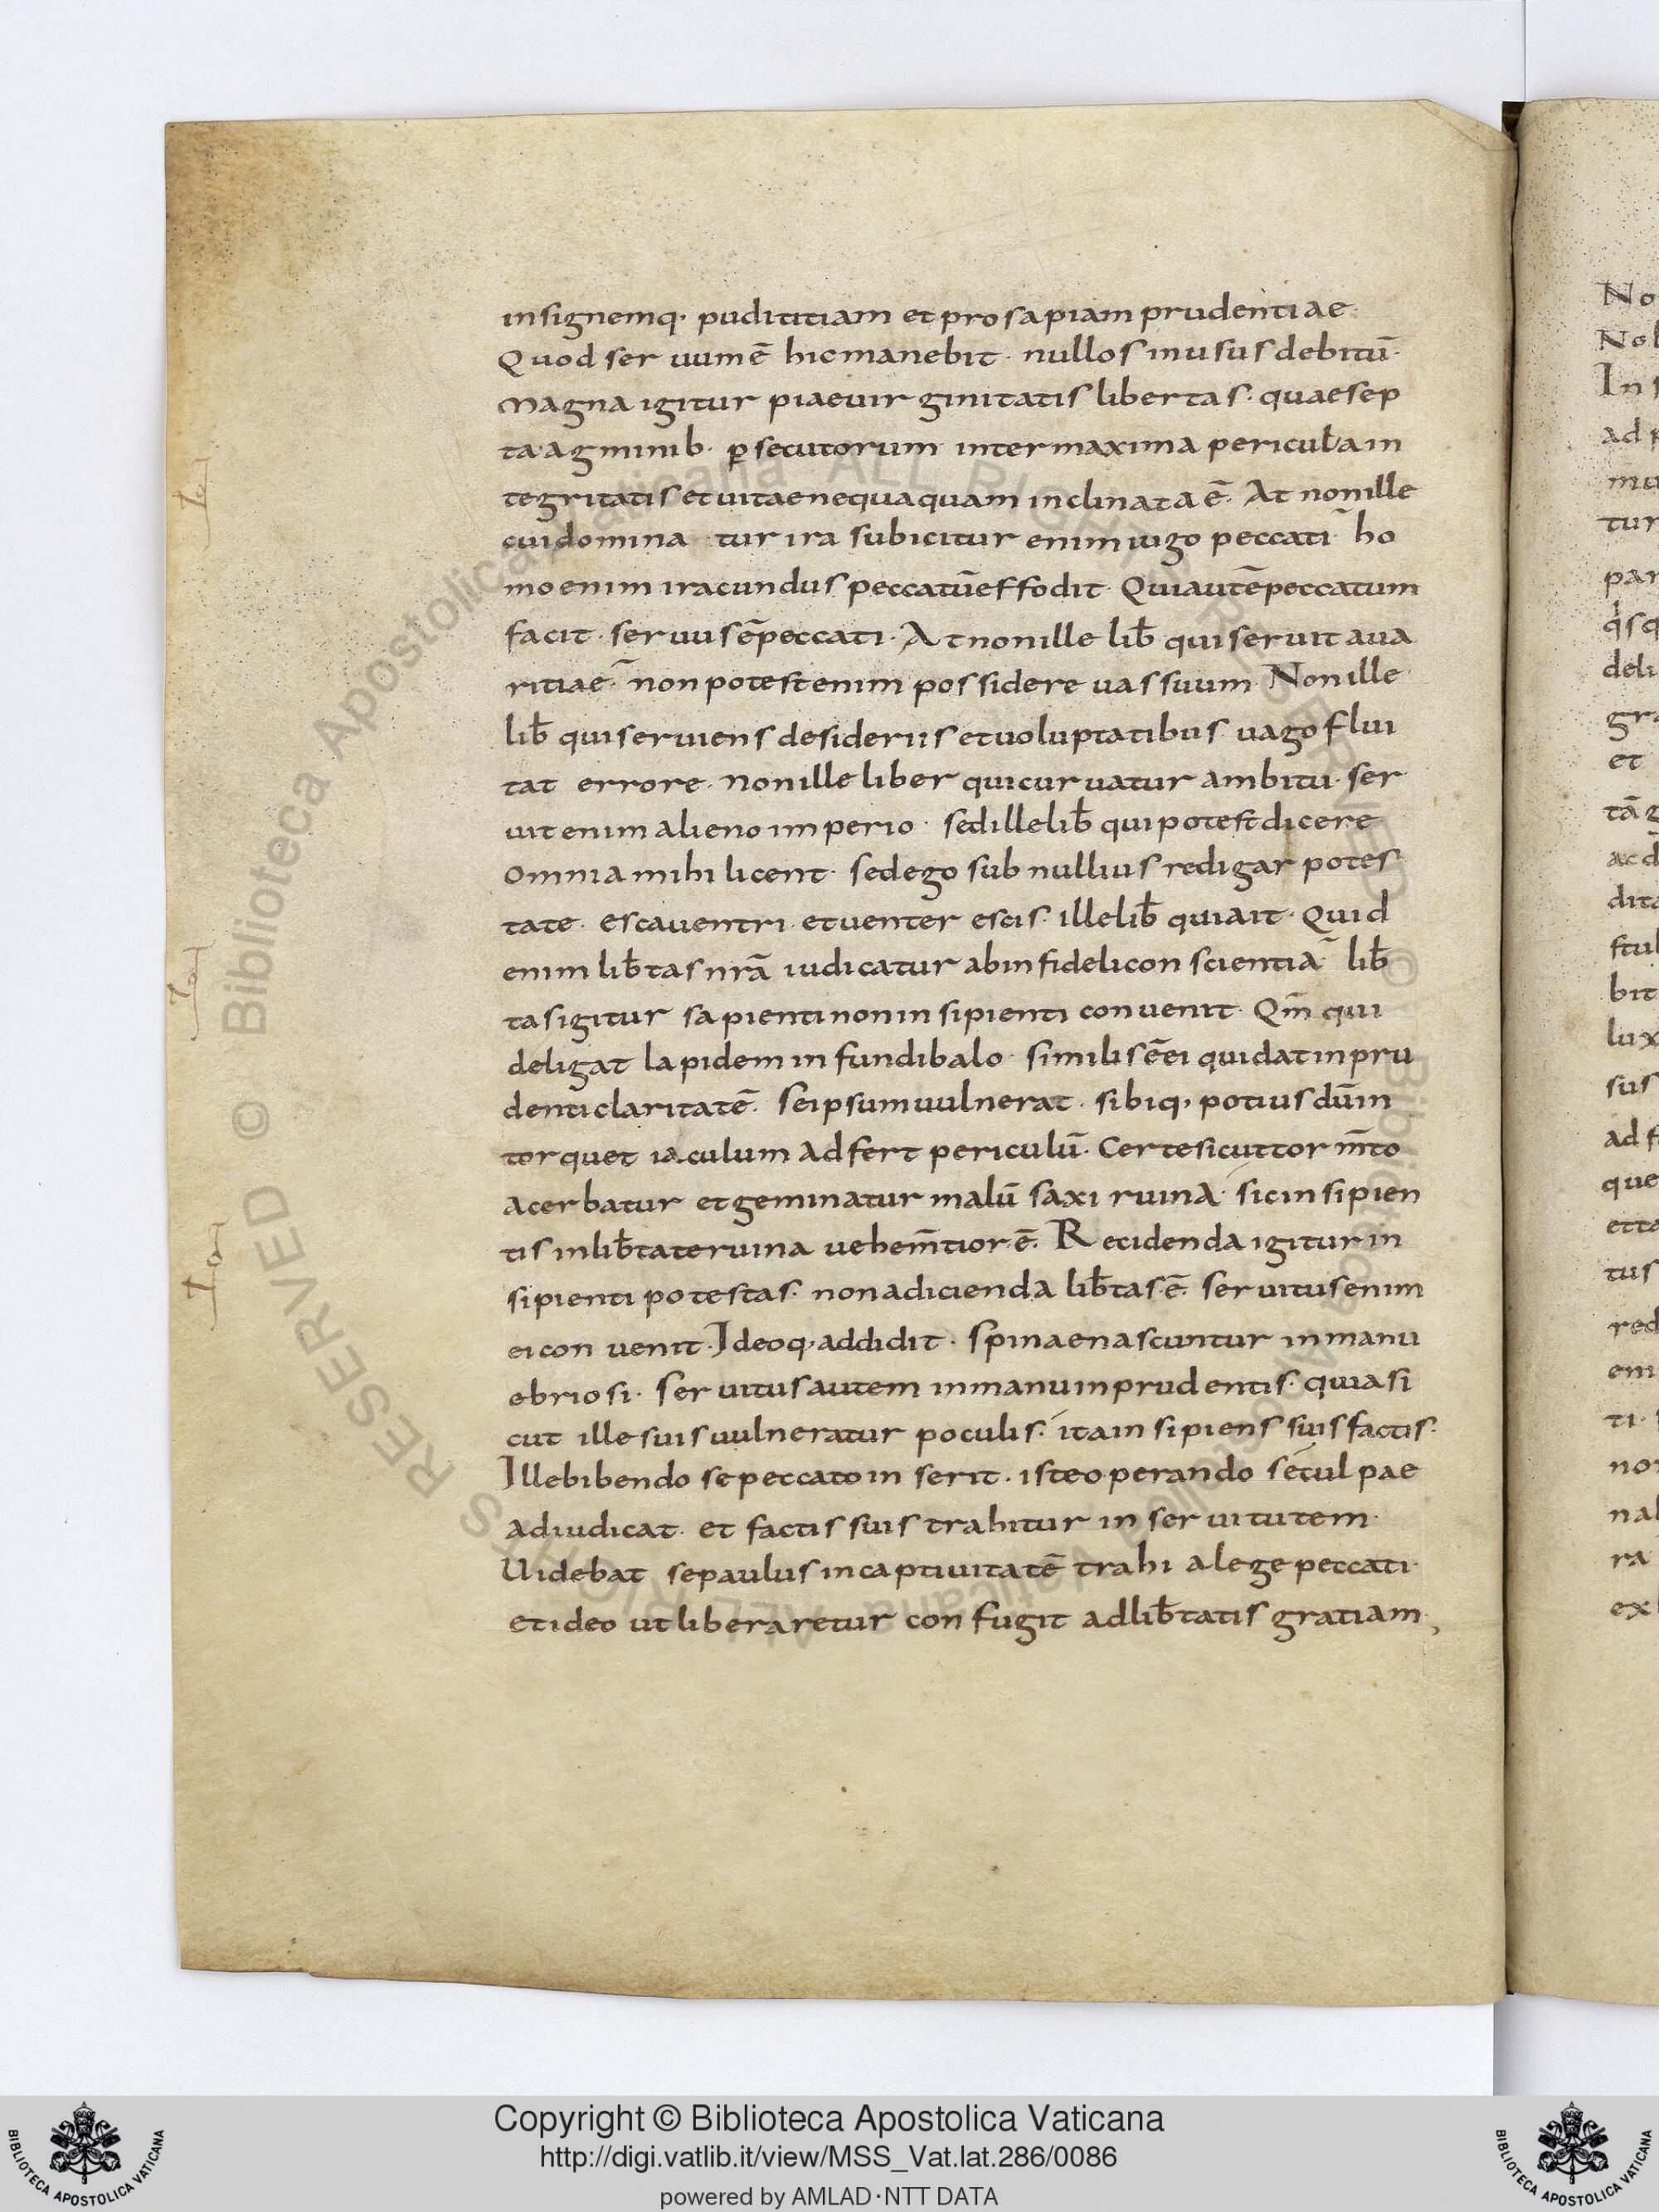 insignemq· pudititiam et prosapiam prudentiae·
Quod ser uum ē hic manebit· nullos in usus debitū·
Magna igitur piae uirginitatis libertas· quae sep
ta agminib· p̱secutorum inter maxima pericula in
tegritatis et uitae nequaquam inclinata ē· At non ille
cui domina tur ira subicitur enim iugo peccati· ho
mo enim iracundus peccatū effodit· Qui autē peccatum
facit· seruus ē peccati· At non ille lib̄ qui seruit aua
ritiae· non potest enim possidere uas suum· Non ille
lib̄ qui seruiens desideriis et uoluptatibus uago flui
tat errore· non ille liber qui curuatur ambitu· ser
uit enim alieno imperio· sed ille lib̄ qui potest dicere
omnia mihi licent· sed ego sub nullius redigar potes
tate· esca uentri· et uenter escis· ille lib̄ qui ait· Quid
enim lib̄tas nr̄a iudicatur ab infideli conscientia· lib̄
tas igitur sapienti non insipienti conuenit· Qm̄ qui
deligat lapidem in fundibalo· similis ē ei qui dat inpru
denti claritatē· Se ipsum uulnerat· sibiq, potius dūm
torquet iaculum adfert periculū· Certe sicut torm̄to
acerbatur et geminatur malū saxi ruina· sic insipien
tis in lib̄tate ruina uehem̄tior·ē· Recidenda igitur in
sipienti potestas· non adicienda lib̄tas·ē· seruitus enim
ei conuenit· Ideoq, addidit· Spinae nascuntur in manu
ebriosi· Seruitus autem in manu inprudentis· quia si
cut ille suis uulneratur poculis· ita insipiens suis factis·
Ille bibendo se peccato inserit· iste operando se culpae
adiudicat· et factis suis trahitur in seruitutem·
Uidebat se paulus in captiuitatē trahi a lege peccati·
et ideo ut liberaretur confugit ad lib̄tatis gratiam·,
© Biblioteca Apostolica Vaticana ALL RIGHTS RESERVED
Copyright © Biblioteca Apostolica Vaticana
http://digi.vatlib.it/view/MSS_Vat.lat.286/0086
powered by AMLAD·NTT DATA
BIBLIOTECA APOSTOLICA VATICANA
BIBLIOTECA APOSTOLICA VATICANA